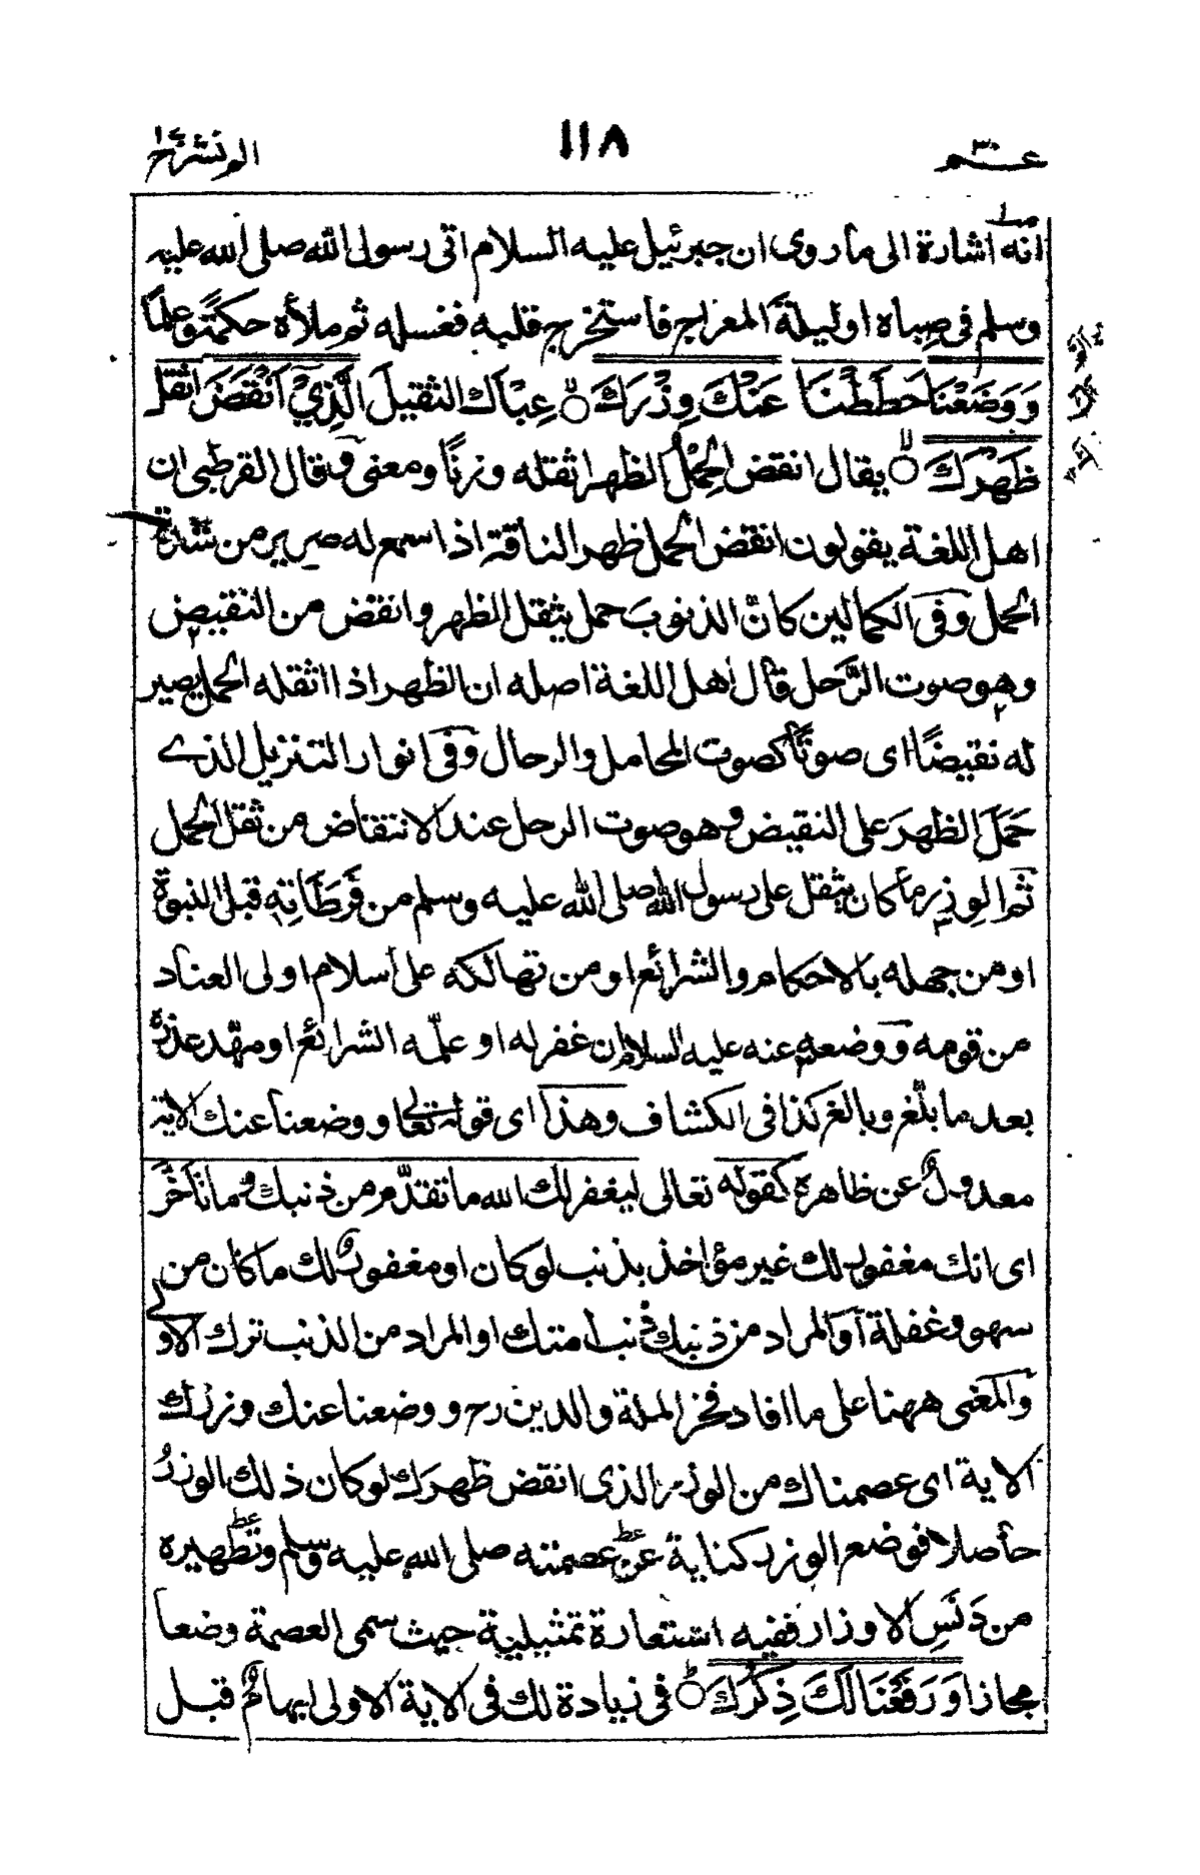 عم ٣٠
١١٨
الم نشرح
انه اشارة الى ما روى ان جبرئيل عليه السلام اتى رسول الله صلى الله عليه
وسلم فى صباه او ليلة المعراج فاستخرج قلبه فغسله ثم ملأه حكمةً وعلمًا
وَوَضَعْنَا حَطَطْنَا عَنْكَ وِزْرَكَ عِبْأك الثقيل الَّذِيْٓ اَنْقَضَ اثقل
ظَهْرَكَ يقال انقض الحِمْلُ الظهر اثقله وزنًا ومعنى وقال القرطبى ان
اهل اللغة يقولون انقض الحمل ظهر الناقة اذا سمع له صرير من شدة
الحمل وفى الكمالين كانّ الذنوب حمل يثقل الظهر وانقض من النقيض
وهو صوت الرَّحل قال اهل اللغة اصله ان الظهر اذا اثقله الحمل يصير
له نقيضًا اى صوتًا كصوت المحامل والرحال وفى انوار التنزيل الذے
حَمَلَ الظهرَ على النقيض وهو صوت الرحل عند الانتقاض من ثقل الحمل
ثم الوزر ما كان يثقل على رسول الله صلى الله عليه وسلم من فَرَطَاتِهٖ قبل النبوة
او من جهله بالاحكام والشرائع او من تهالكه على اسلام اولى العناد
من قومه ووضعه عنه عليه السلام ان غفر له او علّمه الشرائع او مهّد عذره
بعد ما بلّغ وبالغ كذا فى الكشاف وهذا اى قوله تعالى ووضعنا عنك الاية
معدول عن ظاهره كقوله تعالى ليغفر لك الله ما تقدّم من ذنبك وما تأخّرَ
اى انك مغفور لك غير مؤاخذ بذنب لو كان او مغفور لك ما كان من
سهو وغفلة او المراد من ذنبك ذنب امتك او المراد من الذنب ترك الاولى
والمعنى ههنا على ما افاد فخر الملة والدين رح ووضعنا عنك وزرك
الاية اى عصمناك من الوزر الذى انقض ظهرك لو كان ذلك الوزر
حاصلا فوضع الوزر كناية عن عصمته صلى الله عليه وسلم وتطهيره
من دَنَسِ الاوزار ففيه استعارة تمثيلية حيث سمى العصمة وضعا
مجازا وَرَفَعْنَا لَكَ ذِكْرَكَ فى زيادة لك فى الاية الاولى ايهام قبل